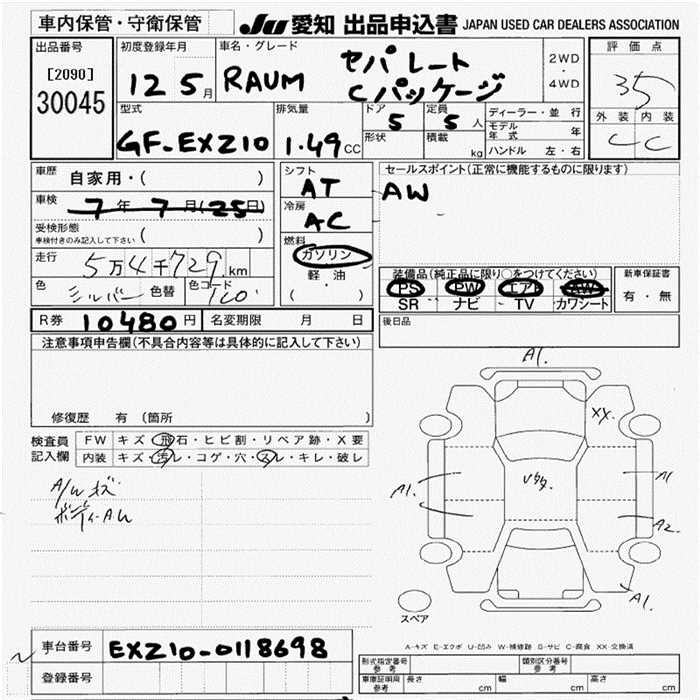 車内保管・守衛保管 JU 愛知 出品申込書 JAPAN USED CAR DEALERS ASSOCIATION
出品番号 初度登録年月 車名・グレード 評価点
[2090] 12 5月 RAUM セパレート 2WD
30045 Cパッケージ ・4WD 35
型式 排気量 ドア 定員 ディーラー・並行 外装 内装
GF-EXZ10 1.49CC 5 5人 モデル年式 年 C C
形状 積載 kg ハンドル 左・右
車歴 自家用・( ) シフト AT セールスポイント(正常に機能するものに限ります)
車検 7年7月(25日) 冷房 AC AW
受検形態
車検付きのみ記入して下さい ( ) 燃料 ガソリン
走行 5万4千729km 軽油 装備品(純正品に限り○をつけてください) 新車保証書
色 シルバー 色替 色コード 1C0 ( ・ ) PS PW エアB AW 有・無
SR ナビ TV カワシート
R券 10480円 名変期限 月 日 後日品
注意事項申告欄(不具合内容等は具体的に記入して下さい)
修復歴 有 (箇所 )
検査員 FW キズ・飛石・ヒビ割・リペア跡・X要
記入欄 内装 キズ・汚レ・コゲ・穴・スレ・キレ・破レ
A/W キズ
ボディーAU
A1.
XX.
A1.
A1
A2
A1.
スペア
A-キズ E-エクボ U-凹み W-補修跡 S-サビ C-腐食 XX-交換済
車台番号 EXZ10-0118698
登録番号
形式指定番号 参考 類別区分番号 参考
車庫証明用 参考 長さ cm 幅 cm 高さ cm